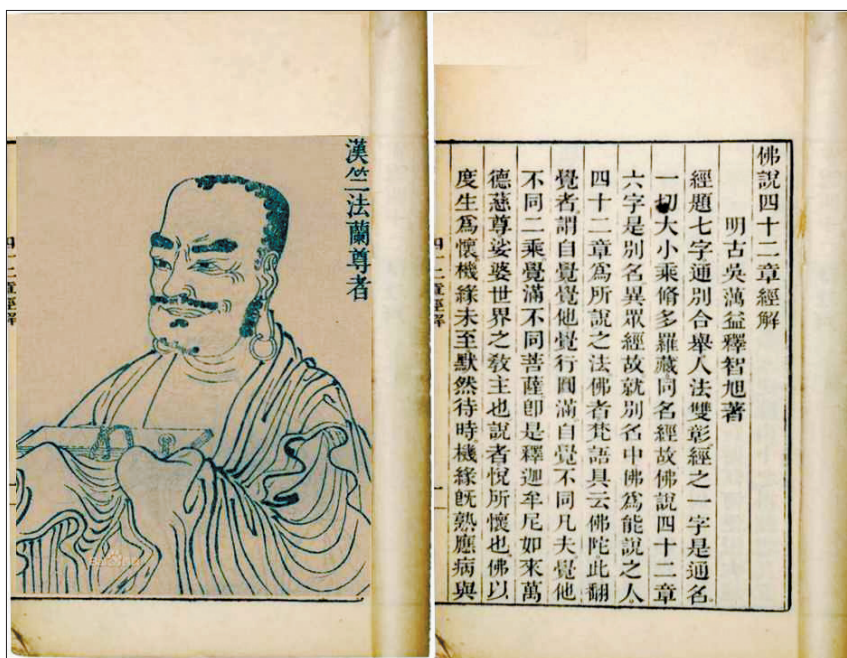 佛說四十二章經解
明古吳蕅益釋智旭著
經題七字通別合舉人法雙彰經之一字是通名。
一切大小乘脩多羅藏同名經故佛說四十二章
六字是別名異眾經故就別名中佛爲能說之人。
四十二章爲所說之法佛者梵語具云佛陀此翻
覺者謂自覺覺他覺行圓滿自覺不同凡夫覺他
不同二乘覺滿不同菩薩卽是釋迦牟尼如來萬
德慈尊娑婆世界之敎主也說者悅所懷也佛以
度生爲懷機緣未至默然待時機緣旣熟應病與
四十二章經解
漢竺法蘭尊者
四十二章經解